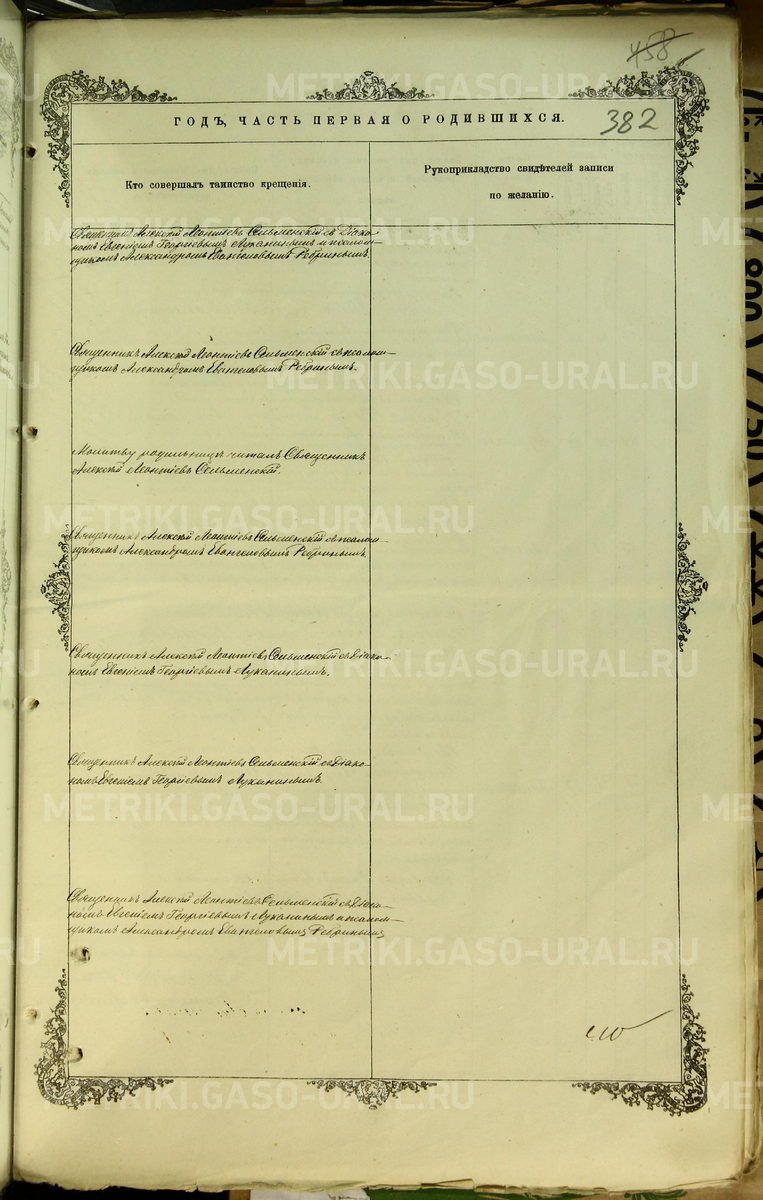 458
382
ГОДЪ, ЧАСТЬ ПЕРВАЯ О РОДИВШИХСЯ.
Кто совершалъ таинство крещенія.
Рукоприкладство свидѣтелей записи
по желанію.
Священникъ Алексій Леонтіевъ Сельменскій съ Діако-
номъ Евгеніемъ Георгіевымъ Луканинымъ и псалом-
щикомъ Александромъ Евангеловымъ Ребринымъ.
Священникъ Алексій Леонтіевъ Сельменскій съ псалом-
щикомъ Александромъ Евангеловымъ Ребринымъ.
Молитву родильницѣ читалъ Священникъ
Алексій Леонтіевъ Сельменскій.
Священникъ Алексій Леонтіевъ Сельменскій съ псалом-
щикомъ Александромъ Евангеловымъ Ребринымъ.
Священникъ Алексій Леонтіевъ Сельменскій съ Діако-
номъ Евгеніемъ Георгіевымъ Луканинымъ.
Священникъ Алексій Леонтіевъ Сельменскій съ Діако-
номъ Евгеніемъ Георгіевымъ Луканинымъ.
Священникъ Алексій Леонтіевъ Сельменскій съ Діако-
номъ Евгеніемъ Георгіевымъ Луканинымъ и псалом-
щикомъ Александромъ Евангеловымъ Ребринымъ
METRIKI.GASO-URAL.RU